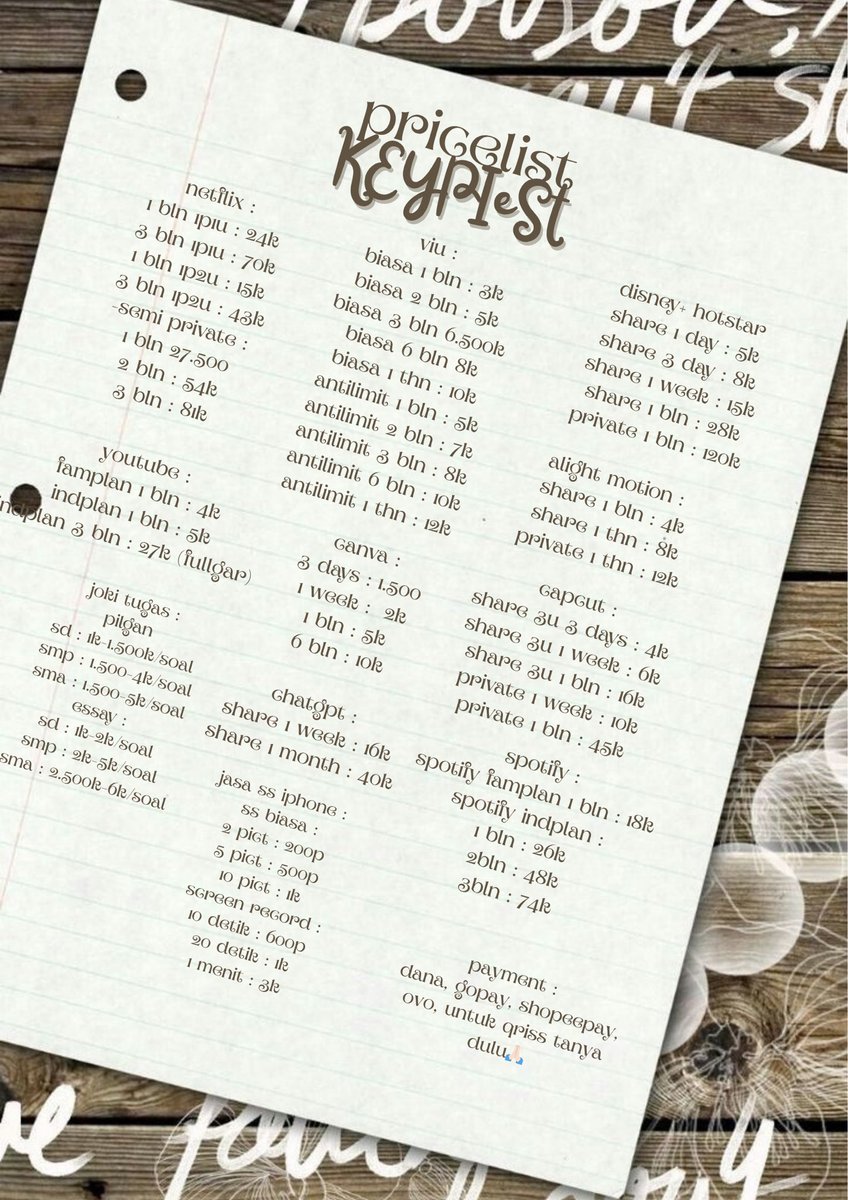 pricelist
KEYPIeSt
netflix :
1 bln 1p1u : 24k
3 bln 1p1u : 70k
1 bln 1p2u : 15k
3 bln 1p2u : 43k
-semi private :
1 bln 27.500
2 bln : 54k
3 bln : 81k
youtube :
famplan 1 bln : 4k
indplan 1 bln : 5k
indplan 3 bln : 27k (fullgar)
joki tugas :
pilgan
sd : 1k-1.500k/soal
smp : 1.500-4k/soal
sma : 1.500-5k/soal
essay :
sd : 1k-2k/soal
smp : 2k-5k/soal
sma : 2.500k-6k/soal
viu :
biasa 1 bln : 3k
biasa 2 bln : 5k
biasa 3 bln 6.500k
biasa 6 bln 8k
biasa 1 thn : 10k
antilimit 1 bln : 5k
antilimit 2 bln : 7k
antilimit 3 bln : 8k
antilimit 6 bln : 10k
antilimit 1 thn : 12k
canva :
3 days : 1.500
1 week : 2k
1 bln : 5k
6 bln : 10k
chatgpt :
share 1 week : 16k
share 1 month : 40k
jasa ss iphone :
ss biasa :
2 pict : 200p
5 pict : 500p
10 pict : 1k
screen record :
10 detik : 600p
20 detik : 1k
1 menit : 3k
disney+ hotstar
share 1 day : 5k
share 3 day : 8k
share 1 week : 15k
share 1 bln : 28k
private 1 bln : 120k
alight motion :
share 1 bln : 4k
share 1 thn : 8k
private 1 thn : 12k
capcut :
share 3u 3 days : 4k
share 3u 1 week : 6k
share 3u 1 bln : 16k
private 1 week : 10k
private 1 bln : 45k
spotify :
spotify famplan 1 bln : 18k
spotify indplan :
1 bln : 26k
2bln : 48k
3bln : 74k
payment :
dana, gopay, shopeepay,
ovo, untuk qriss tanya
dulu🙏🏻